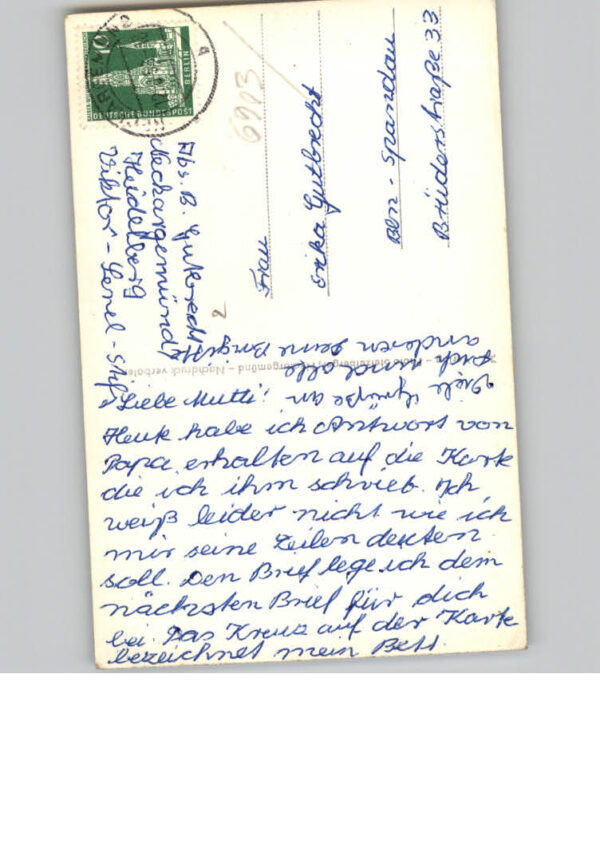 10
BERLIN
DEUTSCHE BUNDESPOST
6903
Abs. B. Gutbrecht
Neckargemünd/
Heidelberg
Viktor-Lenel-Stift
Frau
Erika Gutbrecht
Bln-Spandau
Brüderstraße 33
2
Nachdruck verboten
Liebe Mutti!
Heute habe ich Antwort von
Papa erhalten auf die Karte
die ich ihm schrieb. Ich
weiß leider nicht wie ich
mir seine Zeilen deuten
soll. Den Brief lege ich dem
nächsten Brief für dich
bei. Das Kreuz auf der Karte
bezeichnet mein Bett.
Viele Grüße an
dich und alle
anderen